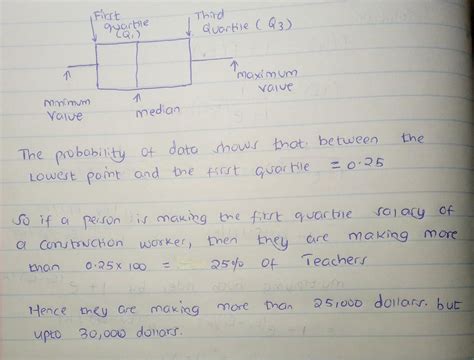 First Third
quartile quartile (Q3)
(Q1)
minimum maximum
value value
median
The probability of data shows that between the
Lowest point and the first quartile = 0.25
So if a person is making the first quartile salary of
a construction worker, then they are making more
than 0.25x 100 = 25% of Teachers
Hence they are making more than 25,000 dollars. but
upto 30,000 dollars.